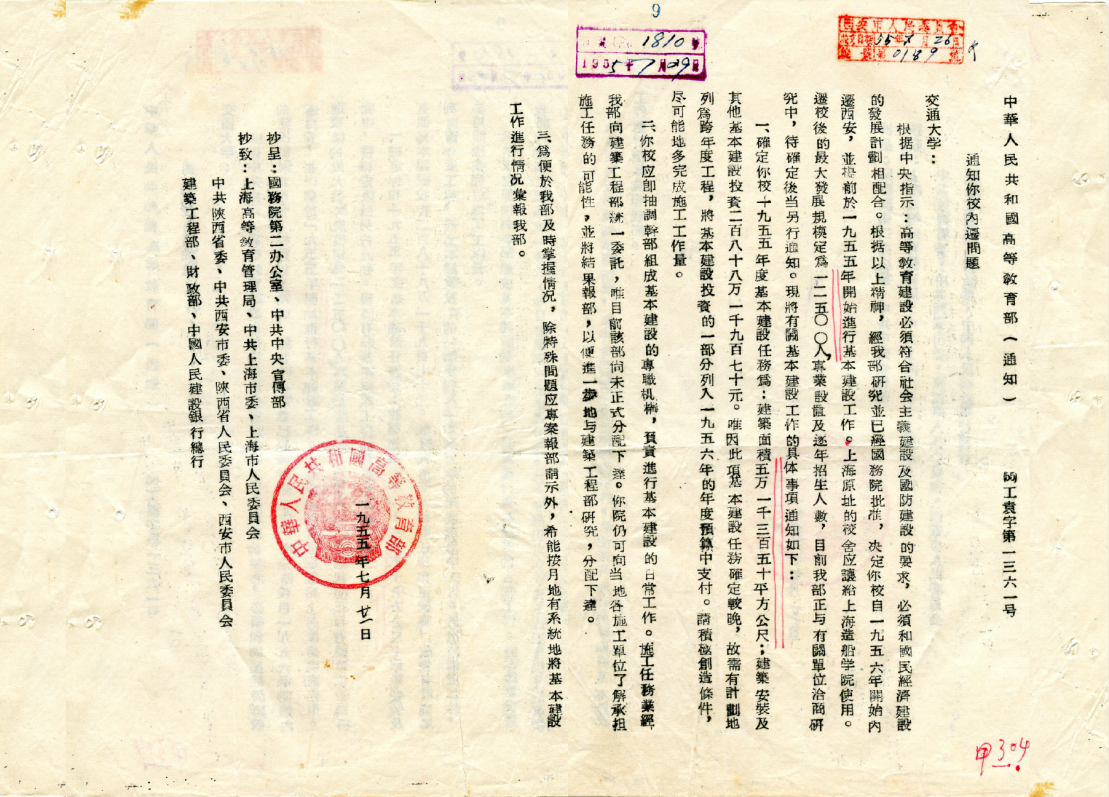 9
1810
1955年7月29日
西安市人民委員會
55年7月26日
0189
中華人民共和國高等教育部（通知）
㈣工袁字第一三六一号
通知你校內遷問題
交通大学：
根据中央指示：高等教育建設必須符合社会主義建設及國防建設的要求，必須和國民經濟建設
的發展計劃相配合。根据以上精神，經我部研究並已經國務院批准，决定你校自一九五六年開始內
遷西安，並提前於一九五五年開始進行基本建設工作。上海原址的校舍应讓給上海造船学院使用。
遷校後的最大發展規模定爲一二五〇〇人，專業設置及逐年招生人數，目前我部正与有關單位洽商研
究中，待確定後当另行通知。現將有關基本建設工作的具体事項通知如下：
一、確定你校一九五五年度基本建設任務爲：建築面積五万一千三百五十平方公尺；建築安裝及
其他基本建設投資二百八十八万一千九百七十元。唯因此項基本建設任務確定較晚，故需有計劃地
列爲跨年度工程，將基本建設投資的一部分列入一九五六年的年度預算中支付。請積極創造條件，
尽可能地多完成施工工作量。
二、你校应卽抽調幹部組成基本建設的專職机構，負責進行基本建設的日常工作。施工任務業經
我部向建築工程部統一委託，唯目前該部尚未正式分配下達。你院仍可向当地各施工單位了解承担
施工任務的可能性，並將結果報部，以便進一步地与建築工程部研究，分配下達。
三、爲便於我部及時掌握情况，除特殊問題应專案報部請示外，希能按月地有系統地將基本建設
工作進行情况彙報我部。
抄呈：國務院第二办公室、中共中央宣傳部
抄致：上海高等教育管理局、中共上海市委、上海市人民委員会
中共陝西省委、中共西安市委、陝西省人民委員会、西安市人民委員会
建築工程部、財政部、中國人民建設銀行總行
中華人民共和國高等教育部
一九五五年七月廿一日
甲304